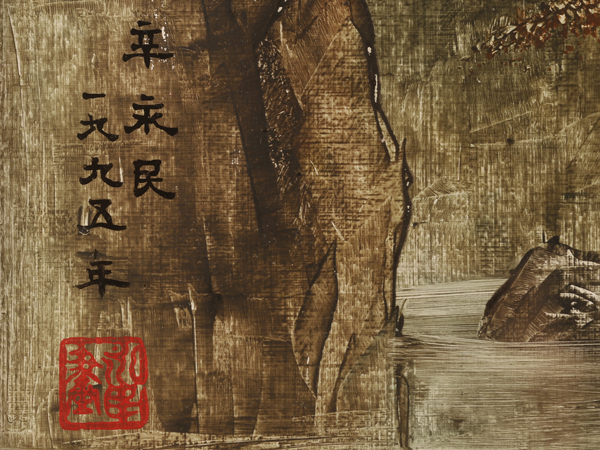 辛永民
一九九五年